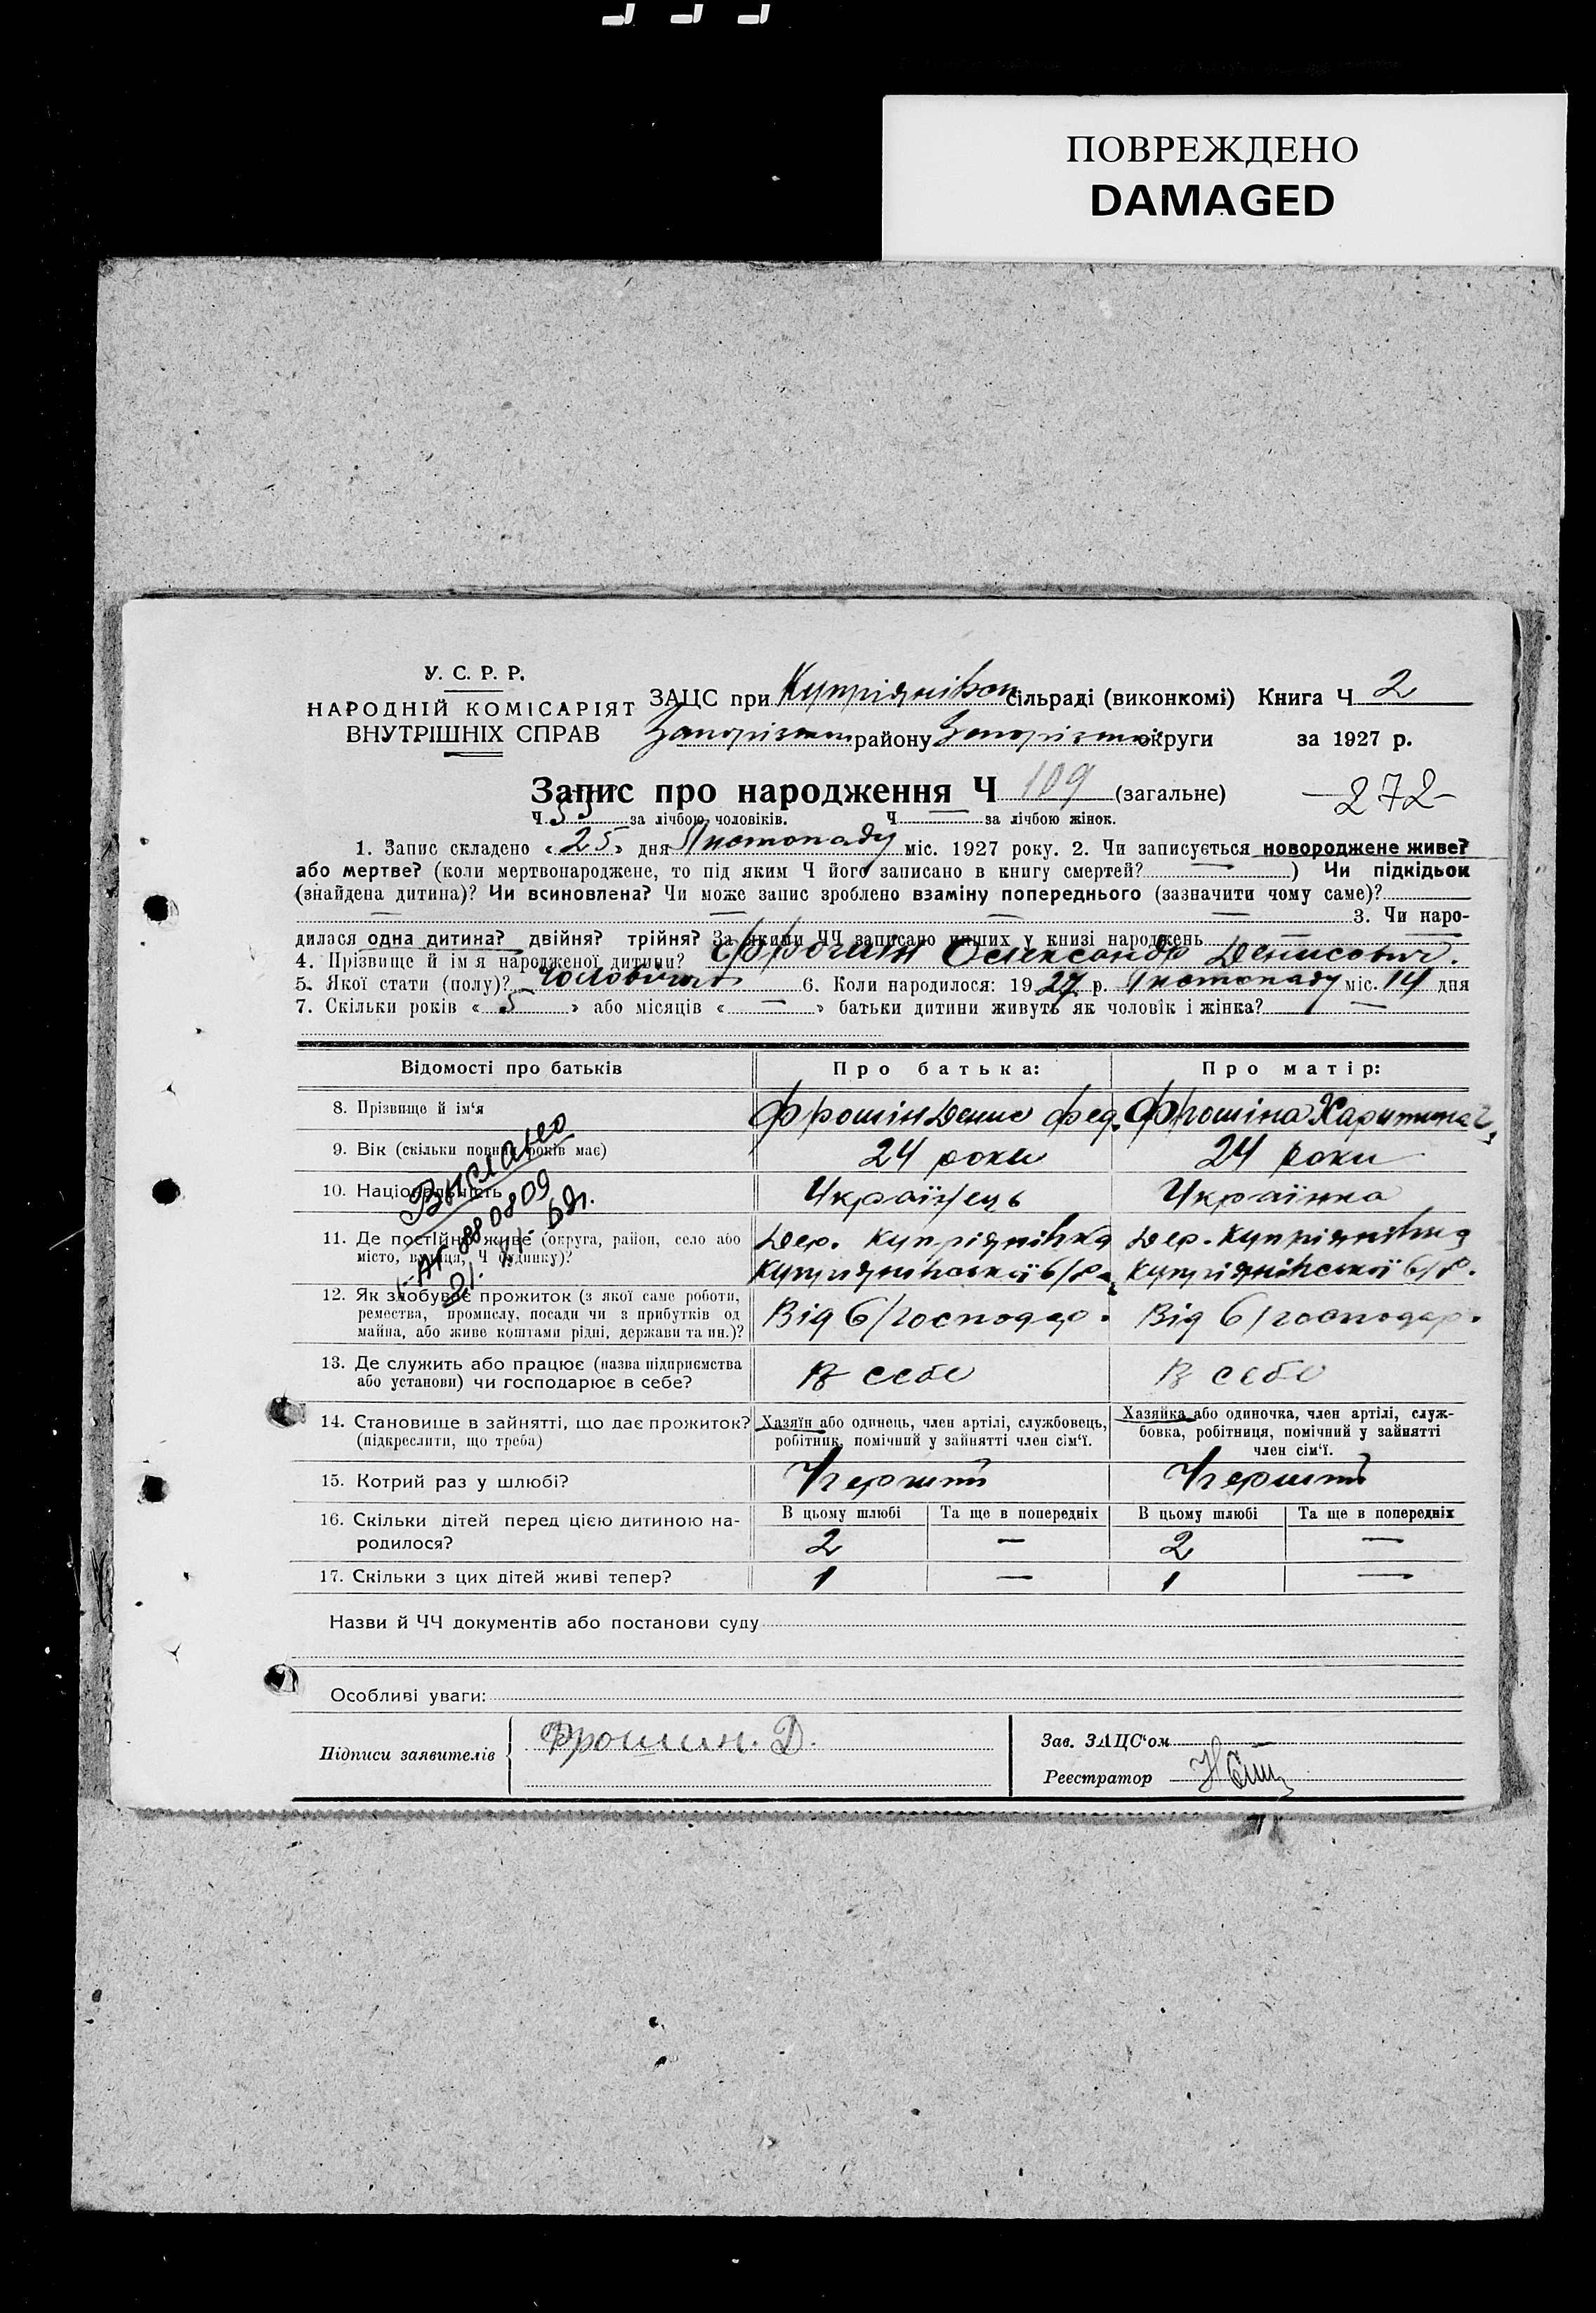 ПОВРЕЖДЕНО
DAMAGED
У. С. Р. Р.
НАРОДНІЙ КОМІСАРІЯТ
ВНУТРІШНІХ СПРАВ
ЗАЦС при Купріянівськ сільраді (виконкомі) Книга Ч 2
Запорізьк району Запорізької округи за 1927 р.
Запис про народження Ч 109 (загальне) —272—
Ч 55 за лічбою чоловіків. Ч — за лічбою жінок.
1. Запис складено «25» дня Листопаду міс. 1927 року. 2. Чи записується новороджене живе?
або мертве? (коли мертвонароджене, то під яким Ч його записано в книгу смертей? — ) Чи підкідьок
(знайдена дитина)? Чи всиновлена? Чи може запис зроблено взаміну попереднього (зазначити чому саме)?
— — — — 3. Чи наро-
дилася одна дитина? двійня? трійня? За якими ЧЧ записано инших у книзі народжень — —
4. Прізвище й ім'я народженої дитини? Фрошин Олександр Денисович.
5. Якої стати (полу)? Чоловічої 6. Коли народилося: 1927 р. Листопаду міс. 14 дня
7. Скільки років «5» або місяців «—» батьки дитини живуть як чоловік і жінка? —
Відомості про батьків Про батька: Про матір:
8. Прізвище й ім'я Фрошін Денис Фед. Фрошіна Харитина
9. Вік (скільки повних років має) 24 роки 24 роки
10. Національність Українець Українка
11. Де постійно живе (округа, район, село або Дер. Купріянівка Дер. Купріянівка
місто, вулиця, Ч будинку)? Купріянівської с/р. Купріянівської с/р.
12. Як здобуває прожиток (з якої саме роботи,
ремества, промислу, посади чи з прибутків од Від с/господар. Від с/господар.
майна, або живе коштами рідні, держави та ин.)?
Выслано
880809
69г.
13. Де служить або працює (назва підприємства
або установи) чи господарює в себе? В себе В себе
14. Становище в зайнятті, що дає прожиток? Хазяїн або одинець, член артілі, службовець, Хазяйка або одиночка, член артілі, служ-
(підкреслити, що треба) робітник, помічний у зайнятті член сім'ї. бовка, робітниця, помічний у зайнятті
член сім'ї.
15. Котрий раз у шлюбі? Перший Перший
16. Скільки дітей перед цією дитиною на- В цьому шлюбі Та ще в попередніх В цьому шлюбі Та ще в попередніх
родилося? 2 — 2 —
17. Скільки з цих дітей живі тепер? 1 — 1 —
Назви й ЧЧ документів або постанови суду
Особливі уваги:
Підписи заявителів Фрошин. Д. Зав. ЗАЦС'ом
Реєстратор